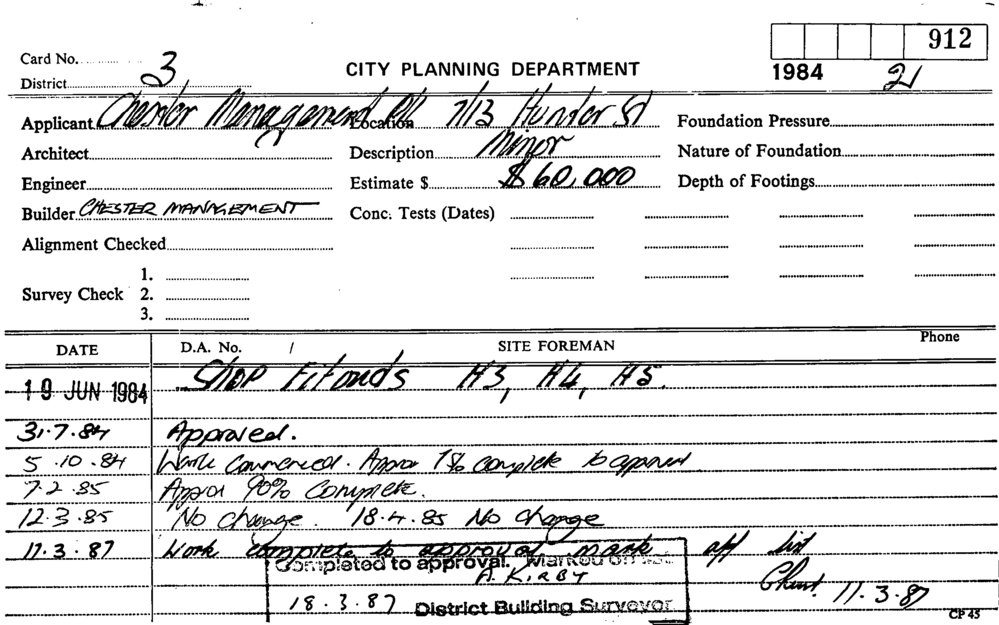 912
Card No.
District 3
CITY PLANNING DEPARTMENT
1984 21
Applicant Chester Management P/L Location 7/13 Hunter St Foundation Pressure
Architect Description Minor Nature of Foundation
Engineer Estimate $ $60,000 Depth of Footings
Builder CHESTER MANAGEMENT Conc. Tests (Dates)
Alignment Checked
1.
Survey Check 2.
3.
DATE D.A. No. / SITE FOREMAN Phone
19 JUN 1984 Shop H3, H4, H5.
31.7.84 Approved.
5.10.84 Work Commenced. Approx % complete to approval
7.2.85 Approx 90% Complete.
12.3.85 No change. 18.4.85 No change
11.3.87 Work complete to approval mark off list
Completed to approval. Marked off list.
A. KIRBY
11.3.87
18.3.87 District Building Surveyor
CP 45